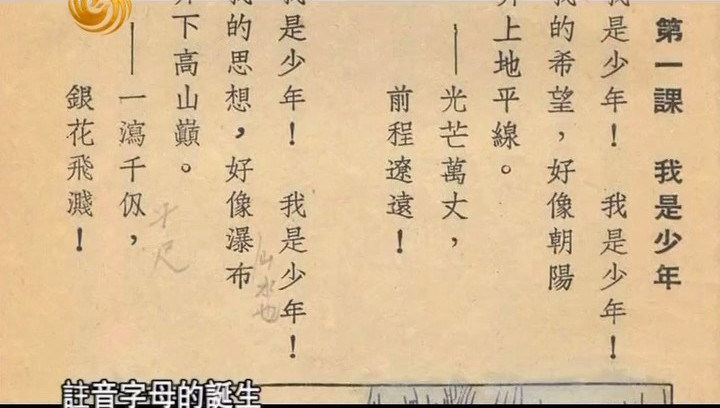 第一課　我是少年
我是少年！　我是少年！
我的希望，好像朝陽
上地平線。
——光芒萬丈，
前程遼遠！
我是少年！　我是少年！
我的思想，好像瀑布
山水也
下高山巔。
——一瀉千仭，
銀花飛濺！
註音字母的誕生